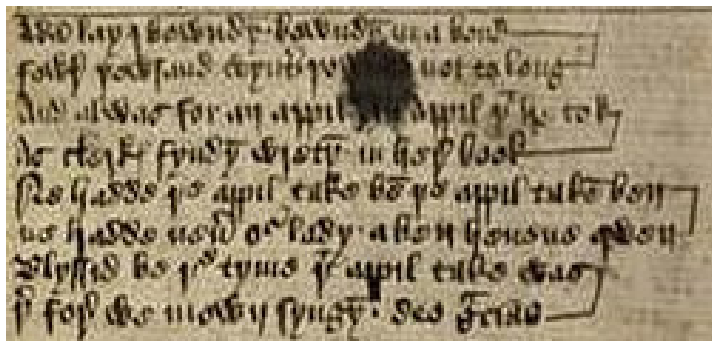 Adā lay ibowndȳ bowndȳ in a bond
fowr þowsand wyntʼ not to long
And al was for an appil an appil þᵗ he tok
As clerkis fyndȳ wretȳ in herʼ book
Ne hadde þe appil take bē þe appil takē ben
ne hadde neuʼ oʳ lady a ben heuene qwen
Blyssid be þᵉ tyme þᵗ appil take was
þʼ forʼ we mown syngȳ deo grācias